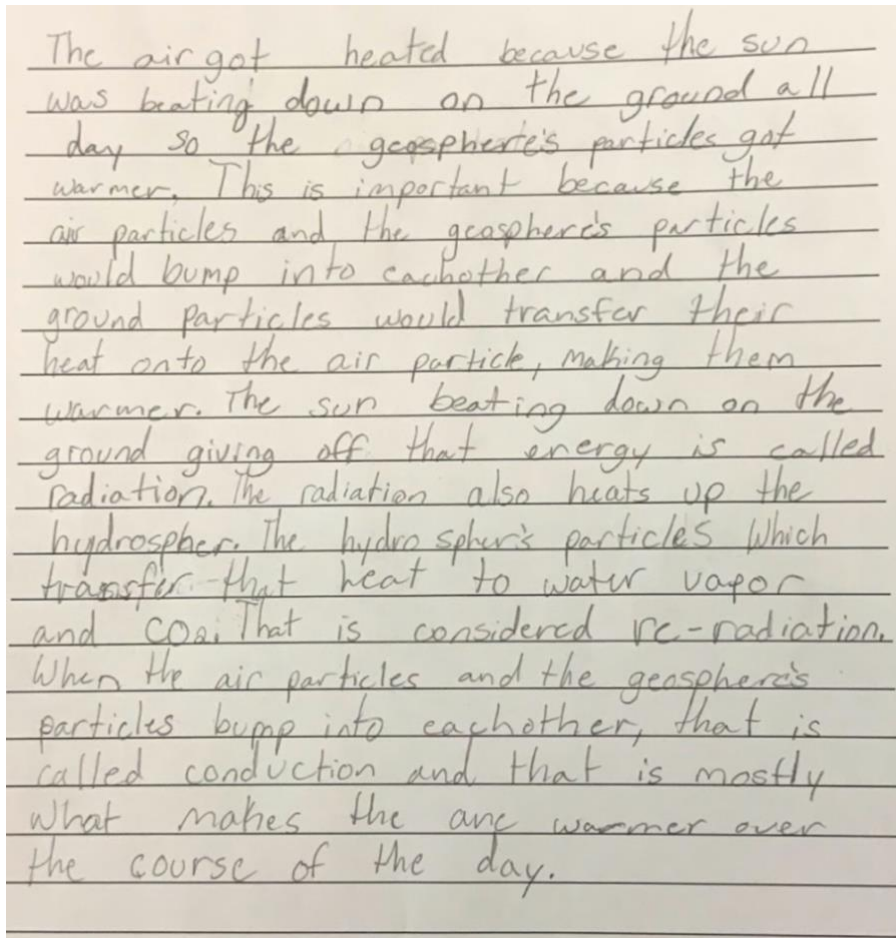 The air got heated because the sun
was beating down on the ground all
day so the geosphere's particles got
warmer. This is important because the
air particles and the geosphere's particles
would bump into eachother and the
ground particles would transfer their
heat onto the air particle, making them
warmer. The sun beating down on the
ground giving off that energy is called
radiation. The radiation also heats up the
hydrospher. The hydrospher's particles which
transfer that heat to water vapor
and CO2. That is considered re-radiation.
When the air particles and the geosphere's
particles bump into eachother, that is
called conduction and that is mostly
what makes the warmer over
the course of the day.